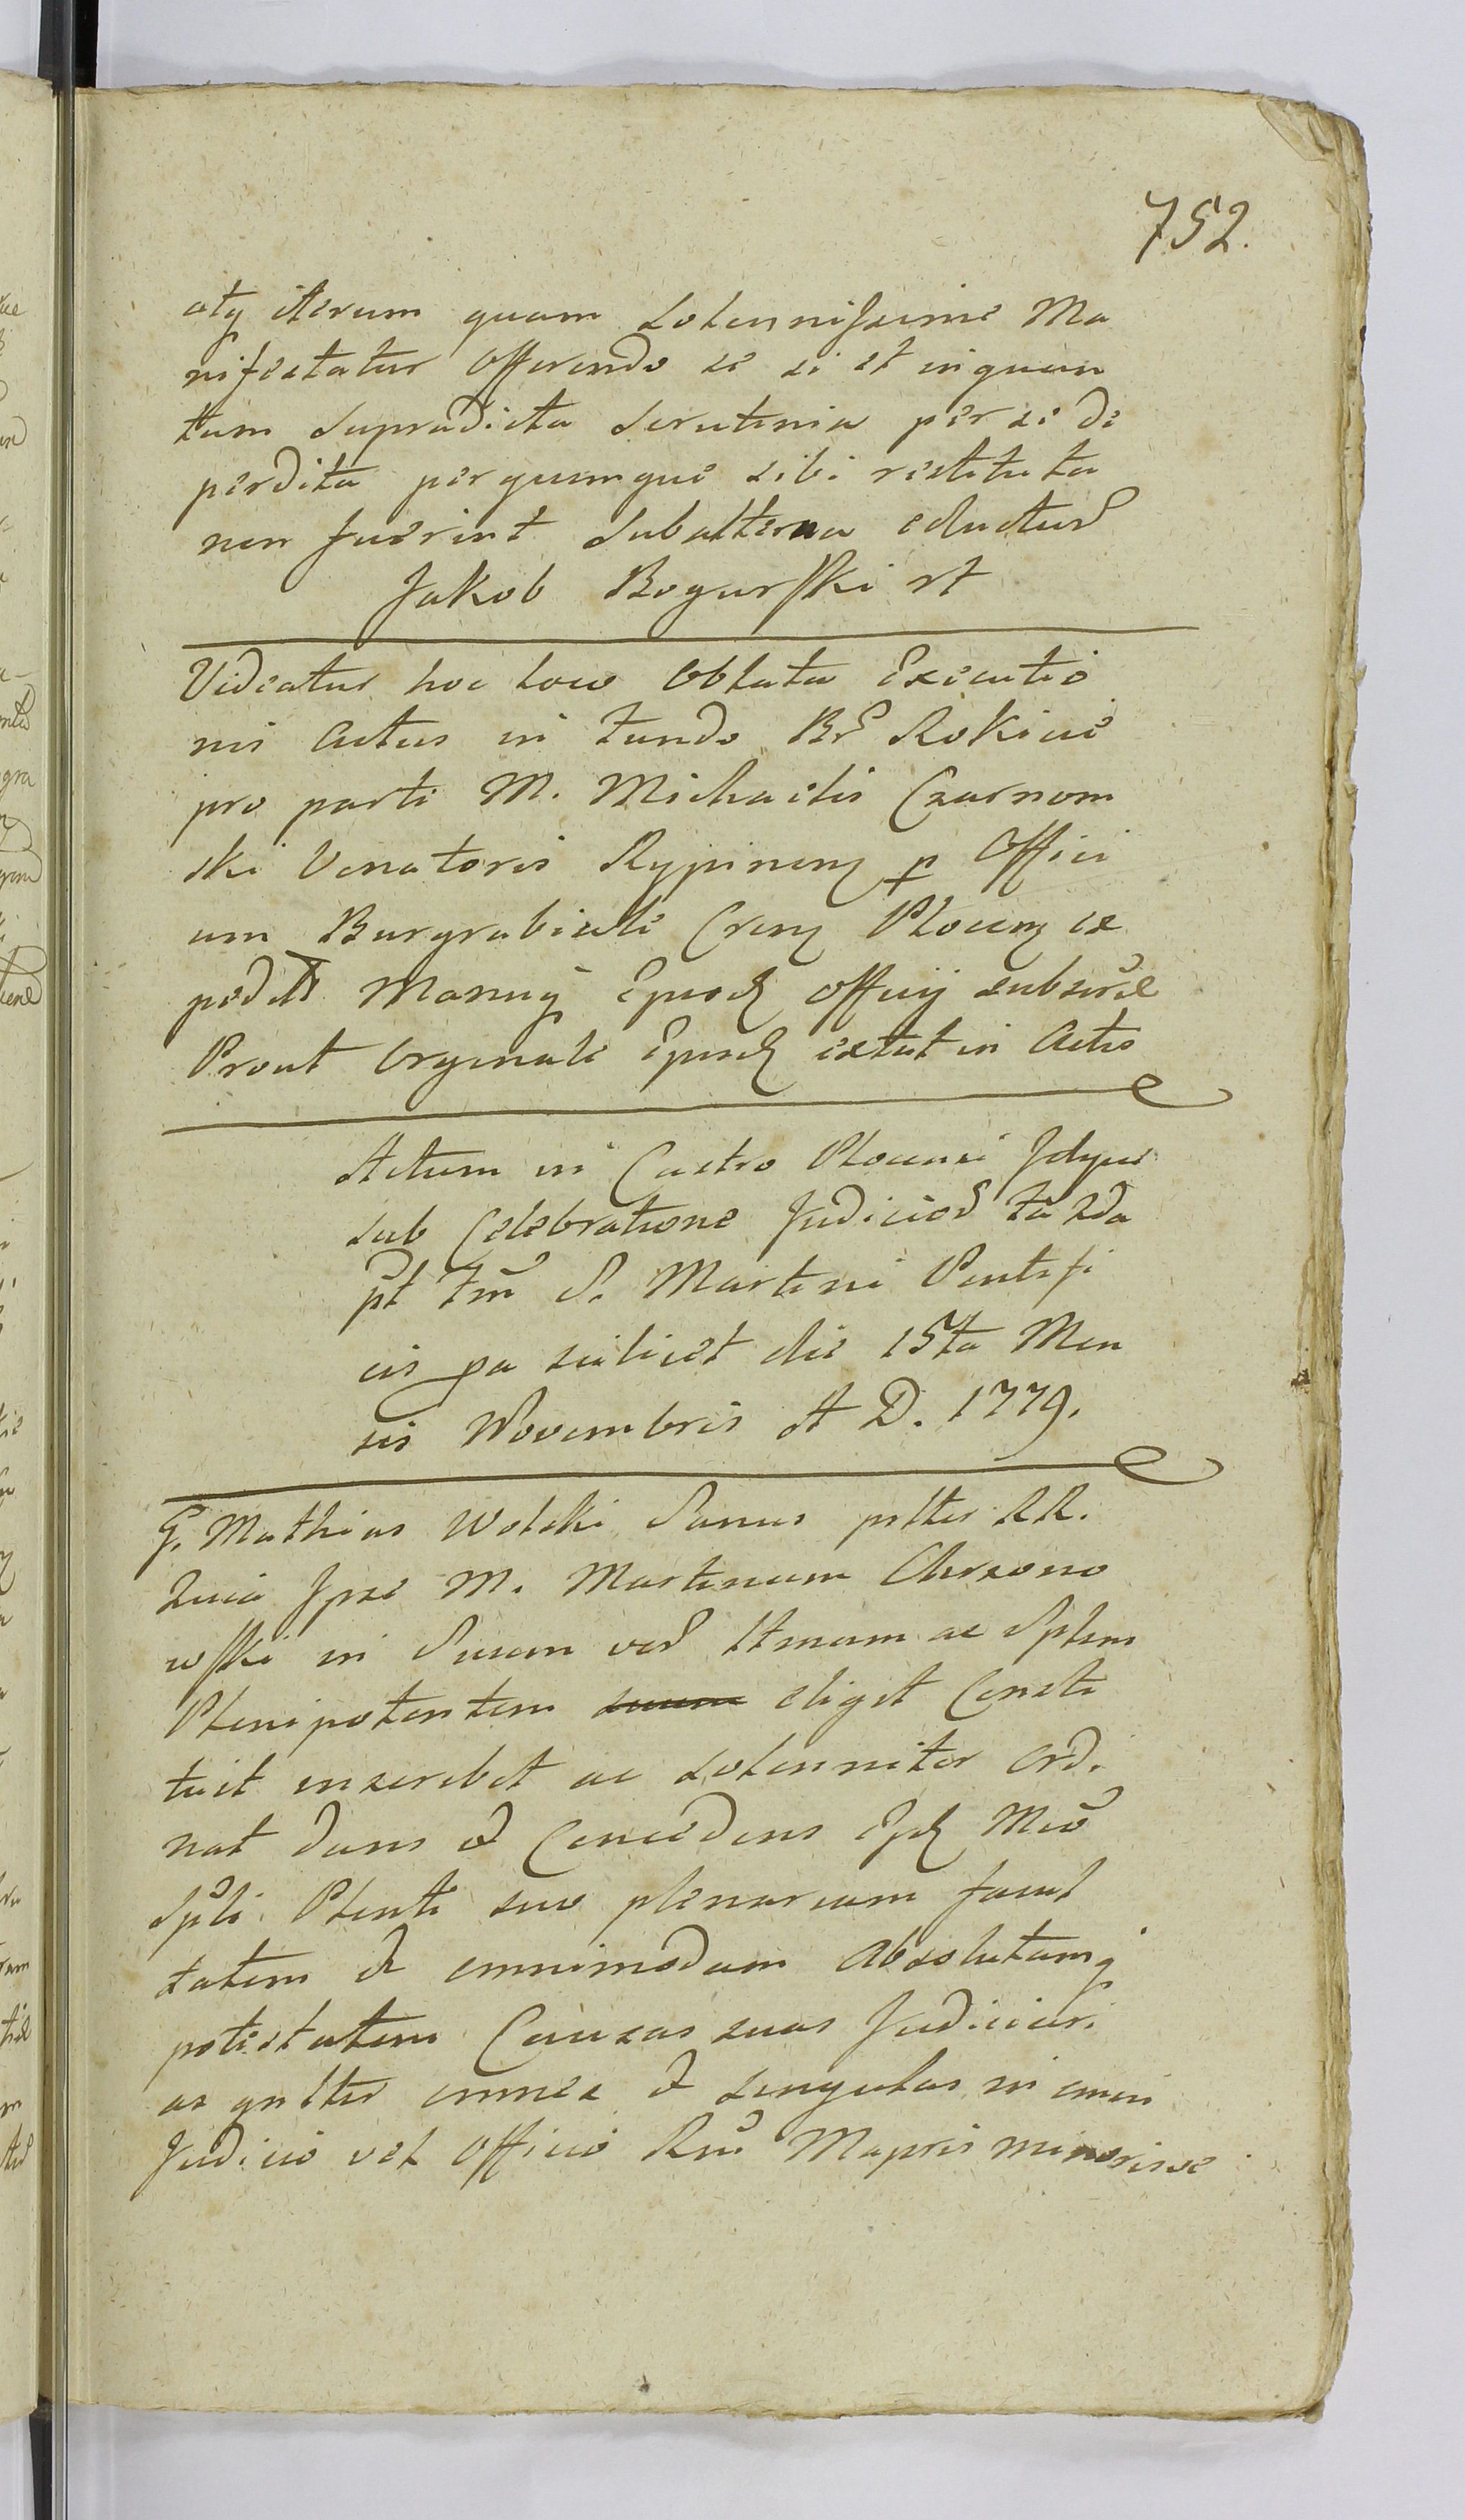 752.
atq iterum quam solennissime Ma
nifestatur offerendo se si et inquan
tum supradicta scrutinia per se de
perdita perquumque sibi restituta
non fuerint subalterna
Jakob Bogurski
Videatur hoc loco Oblata Executio
nis Actus in fundo Rokicie
pro parte M. Michaelis Czarnom
ski Venatoris Rypinen p Offici
um Burgrabiale Cren Plocen ex
pedit Manuq Ejusd Officij subscrae
Prout Orginale Ejusd extat in Actis
Actum in Castro Plocensi Idque
sub Celebratione Judiciod 2da
pt S. Martini Pontifi
cis pa scilicet die 15ta Men
sis Novembris A D. 1779.
G. Mathias Wolski Sanus pltes RR.
Quia Ipse M. Martinum Chrzono
wski in Suum ac Splem
Plenipotentem suum eligit Consti
tuit inscribit ac solenniter Ordi
nat dans et Concedens Ejd
Spli Plenti suo plenariam facul
tatem et omnimodam Absolutamq
potestatem Causas suas Judiciari
as gnltes omnes et singulas in omni
Judicio vel Officio Rni Majoris minorisve